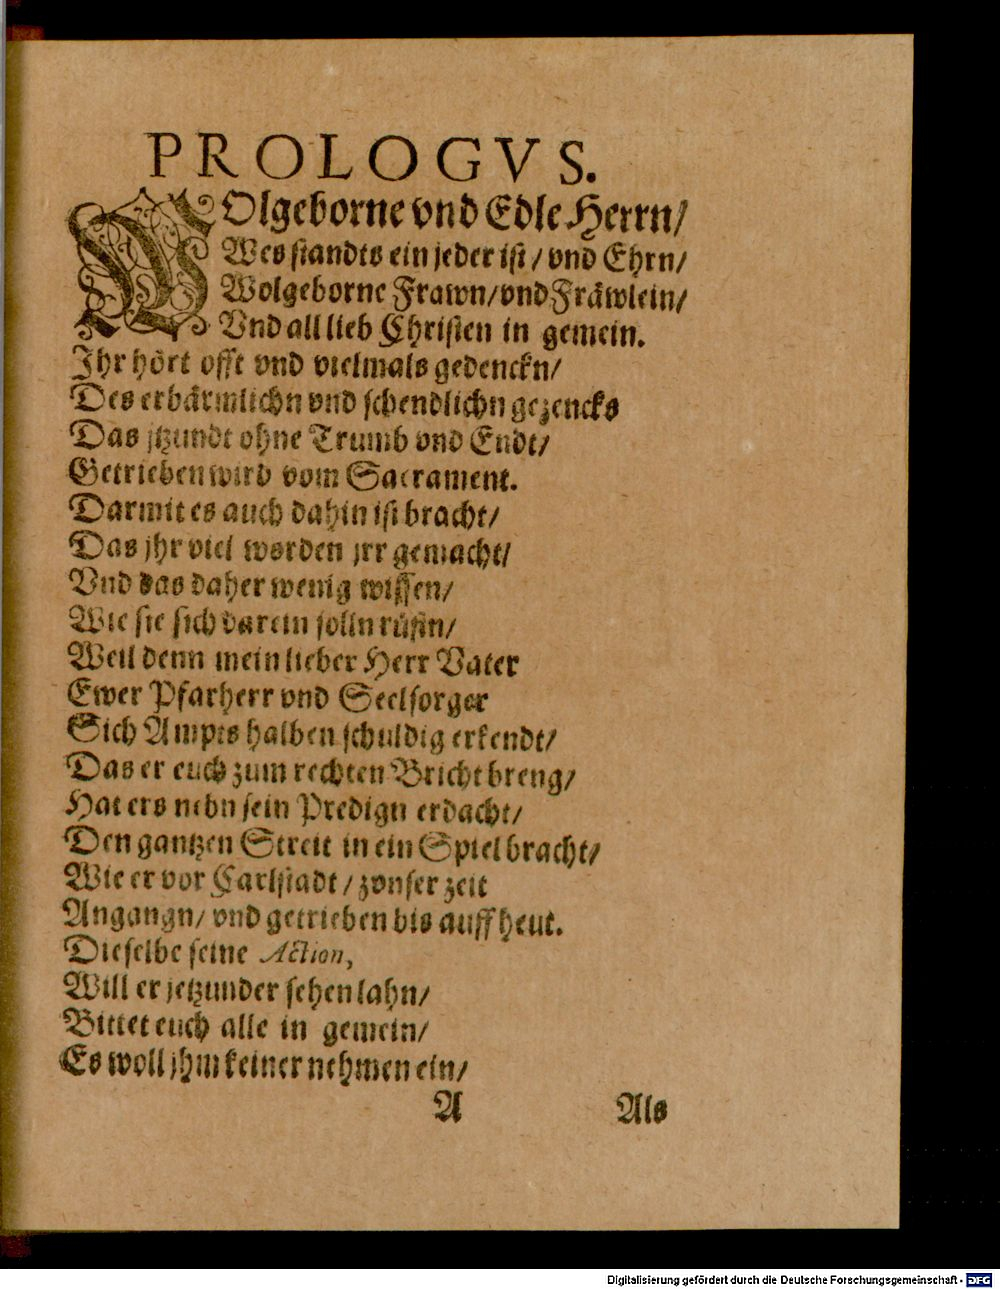 PROLOGVS.
WOlgeborne vnd Edle Herrn/
Wes standts ein jeder ist/ vnd Ehrn/
Wolgeborne Frawn/ vnd Fräwlein/
Vnd all lieb Christen in gemein.
Ihr hört offt vnd vielmals gedenckn/
Des erbärmlichn vnd schendlichn gezencks
Das jtzundt ohne Trumb vnd Endt/
Getrieben wird vom Sacrament.
Darmit es auch dahin ist bracht/
Das jhr viel worden jrr gemacht/
Vnd das daher wenig wissen/
Wie sie sich darein solln
Weil denn mein lieber Herr Vater
Ewer Pfarherr vnd Seelsorger
Sich Ampts halben schuldig erkendt/
Das er euch zum rechten Bricht breng/
Hat ers nebn sein Predign erdacht/
Den gantzen Streit in ein Spiel bracht/
Wie er vor Carlstadt/ zvnser zeit
Angangn/ vnd getrieben bis auff heut.
Dieselbe seine Action,
Will er jetzunder sehen lahn/
Bittet euch alle in gemein/
Es woll jhm keiner nehmen ein/
A Als
Digitalisierung gefördert durch die Deutsche Forschungsgemeinschaft - DFG